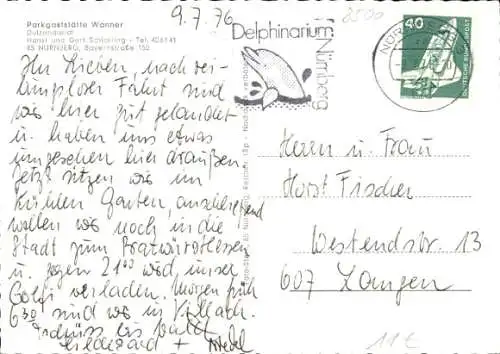 9.7.76
Parkgaststätte Wanner
Dutzendteich
Hansl und Gert Schierling - Tel. 406141
85 NÜRNBERG, Bayernstraße 150
Delphinarium
Nürnberg
40
DEUTSCHE BUNDESPOST
8500
Ihr Lieben, nach rei-
bungsloser Fahrt sind
wir hier gut gelandet
u. haben uns etwas
umgesehen hier draußen.
Jetzt sitzen wir im
kühlen Garten, anschließend
wollen wir noch in die
Stadt zum Bratwurstessen
u. gegen 21.00 wird unser
Golf verladen. Morgen früh
6.30 sind wir in Villach.
Tschüss bis bald
Hildegard +
Herrn u. Frau
Horst Fischer
Westendstr. 13
607 Langen
11€